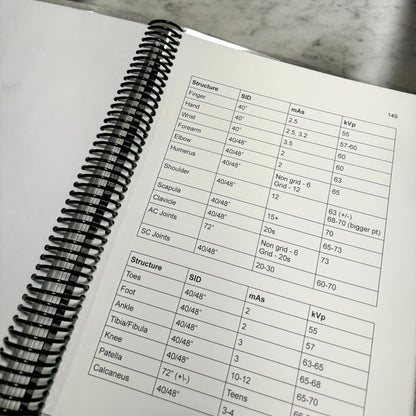 149
Structure SID mAs kVp
Finger 40" 2.5 55
Hand 40" 2.5, 3.2 57-60
Wrist 40" 3.5 60
Forearm 40/48" 2 60
Elbow 40/48" 2 63
Humerus 40/48" Non grid - 6 65
Grid - 12
Shoulder 40/48" 12 63 (+/-)
68-70 (bigger pt)
Scapula 40/48" 15+ 70
Clavicle 40/48" 20s 65-73
AC Joints 72" Non grid - 6 73
Grid - 20s
SC Joints 40/48" 20-30 60-70
Structure SID mAs kVp
Toes 40/48" 2 55
Foot 40/48" 2 57
Ankle 40/48" 3 63-65
Tibia/Fibula 40/48" 3 65-68
Knee 40/48" 10-12 65-70
Patella 72" (+\-) Teens 70
Calcaneus 40/48" 3-4